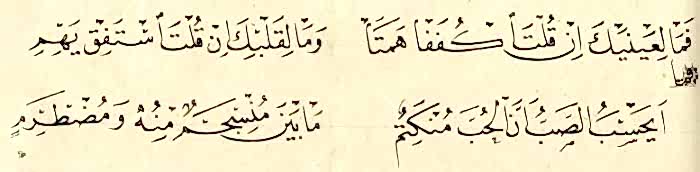 فَمَا لِعَيْنَيْكَ اِنْ قُلْتَ اُكْفُفَا هَمَتَا وَمَا لِقَلْبِكَ اِنْ قُلْتَ اسْتَفِقْ يَهِمِ
اَيَحْسَبُ الصَّبُّ اَنَّ الْحُبَّ مُنْكَتِمٌ مَا بَيْنَ مُنْسَجِمٍ مِنْهُ وَمُضْطَرِمِ